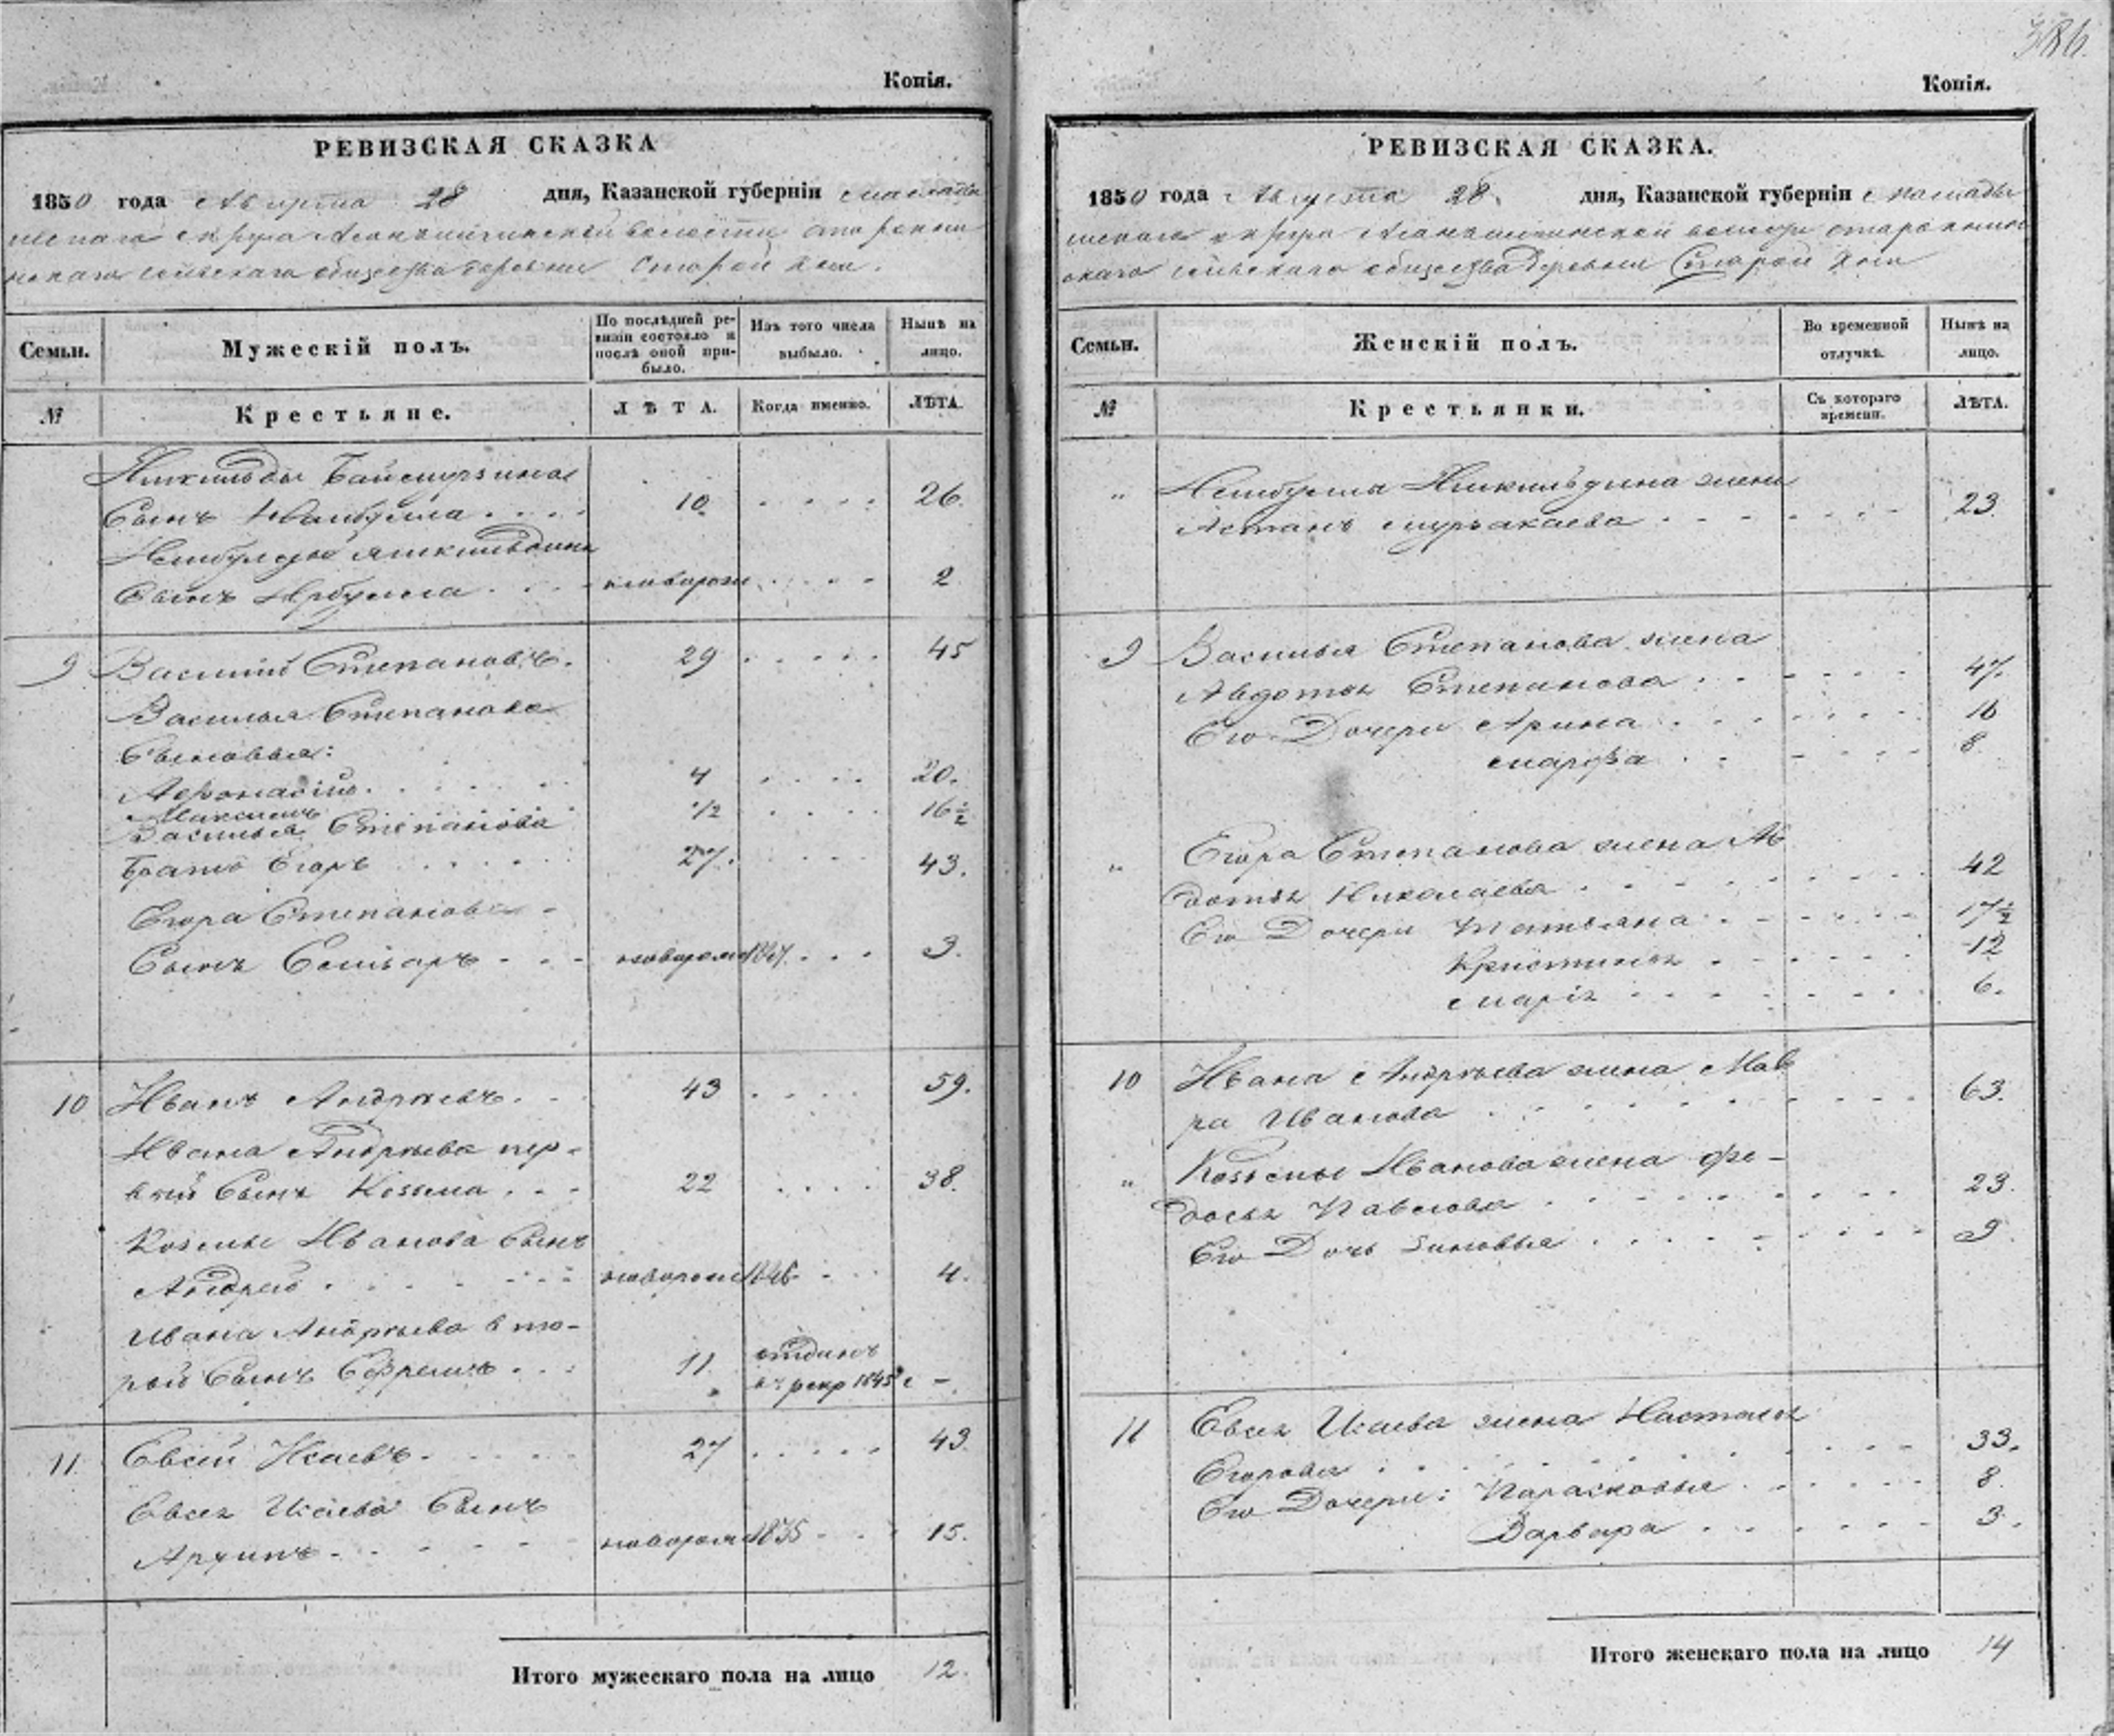 386.
Копія.
РЕВИЗСКАЯ СКАЗКА
1850 года Августа 28 дня, Казанской губерніи Мамады
шскаго округа волости
скаго сельскаго общества деревни Старой
Семьи.
Мужескій полъ.
По послѣдней ре-
визіи состояло и
послѣ оной при-
было.
Изъ того числа
выбыло.
Нынѣ на
лицо.
№
Крестьяне.
ЛѢТА.
Когда именно.
ЛѢТА.
Баймурзина
Сынъ 10 26.
Сынъ новорож 2
9 Василій Степановъ. 29 45
Василья Степанова
Сыновья:
Афонасій 4 20.
Максимъ 1/2 16 1/2
Василья Степанова
Братъ Егоръ 27. 43.
Егора Степанова
Сынъ новорож 1847. 3.
10 Иванъ Андреевъ. 43 59.
Ивана Андреева пер-
вый Сынъ Козьма 22 38.
Козьмы Иванова Сынъ
Андрей новорож 1846 4.
Ивана Андреева вто-
рой Сынъ Ефремъ 11. отданъ
въ рекр 1845 г –
11. Евсей Исаевъ. 27 43.
Евсея Исаева Сынъ
новорож 1835 15.
Итого мужескаго пола на лицо 12.
Копія.
РЕВИЗСКАЯ СКАЗКА.
1850 года Августа 28. дня, Казанской губерніи Мамады
шскаго округа волости
скаго сельскаго общества деревни Старой
Семьи.
Женскій полъ.
Во временной
отлучкѣ.
Нынѣ на
лицо.
№
Крестьянки.
Съ котораго
времени.
ЛѢТА.
„ жена
23.
9 Василья Степанова жена
Авдотья Степанова 47.
Его Дочери Арина 16
Марфа 8.
„ Егора Степанова жена Ав
дотья Николаева 42
Его Дочери Татьяна 17 1/2
Кристинья 12
Марія 6.
10 Ивана Андреева жена Мав
ра Иванова 63.
„ Козьмы Иванова жена Фе-
досья Павлова 23.
Его Дочь Зиновья 9.
11 Евсея Исаева жена Настасья
Егорова 33.
Его Дочери: Парасковья 8.
Варвара 3.
Итого женскаго пола на лицо 14